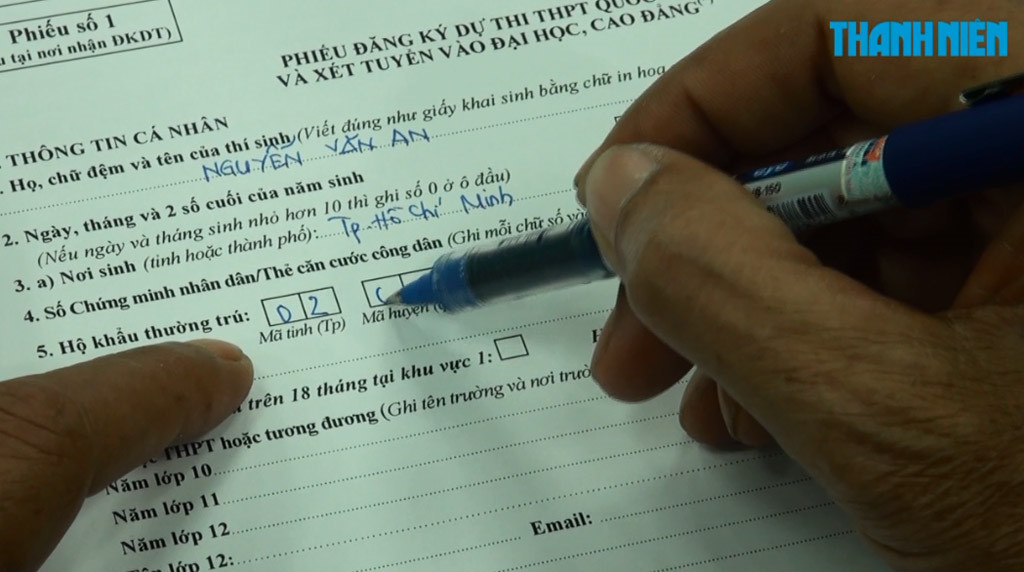 Phiếu số 1
tại nơi nhận ĐKDT)
THANH NIÊN
PHIẾU ĐĂNG KÝ DỰ THI THPT QUỐC
VÀ XÉT TUYỂN VÀO ĐẠI HỌC, CAO ĐẲNG
THÔNG TIN CÁ NHÂN
Họ, chữ đệm và tên của thí sinh (Viết đúng như giấy khai sinh bằng chữ in hoa
NGUYỄN VĂN AN
2. Ngày, tháng và 2 số cuối của năm sinh
(Nếu ngày và tháng sinh nhỏ hơn 10 thì ghi số 0 ở ô đầu)
3. a) Nơi sinh (tỉnh hoặc thành phố): Tp. Hồ Chí Minh
4. Số Chứng minh nhân dân/Thẻ căn cước công dân (Ghi mỗi chữ số
5. Hộ khẩu thường trú: 0 2
Mã tỉnh (Tp) Mã huyện
trên 18 tháng tại khu vực 1:
THPT hoặc tương đương (Ghi tên trường và nơi
Năm lớp 10
Năm lớp 11
Năm lớp 12
Email:
lớp 12: